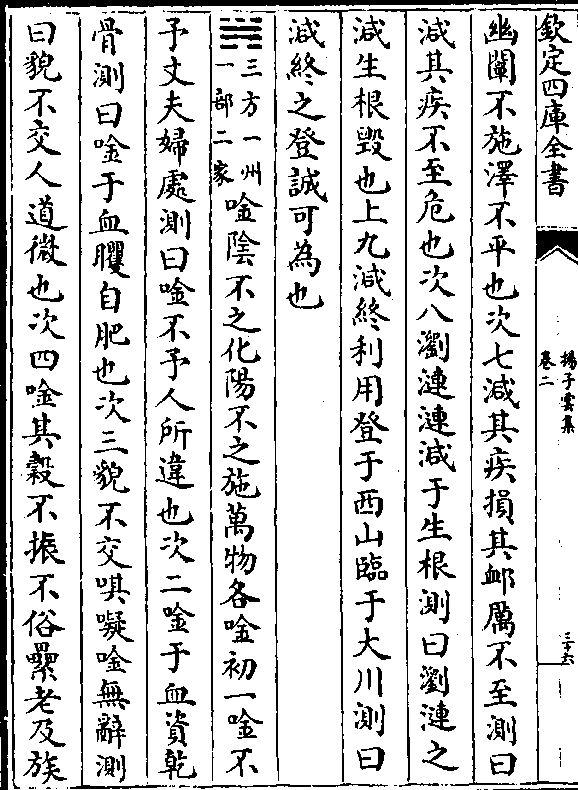 欽定四庫全書
揚子雲集
卷二
三十六
幽闡不施澤不平也次七減其疾損其䘏厲不至測曰
減其疾不至危也次八瀏漣漣減于生根測曰瀏漣之
減生根毀也上九減終利用登于西山臨于大川測曰
減終之登誠可為也
三方一州
一部二家
唫陰不之化陽不之施萬物各唫初一唫不
予丈夫婦處測曰唫不予人所違也次二唫于血資乾
骨測曰唫于血臞自肥也次三貌不交㖷嶷唫無辭測
曰貌不交人道微也次四唫其榖不振不俗纍老及族